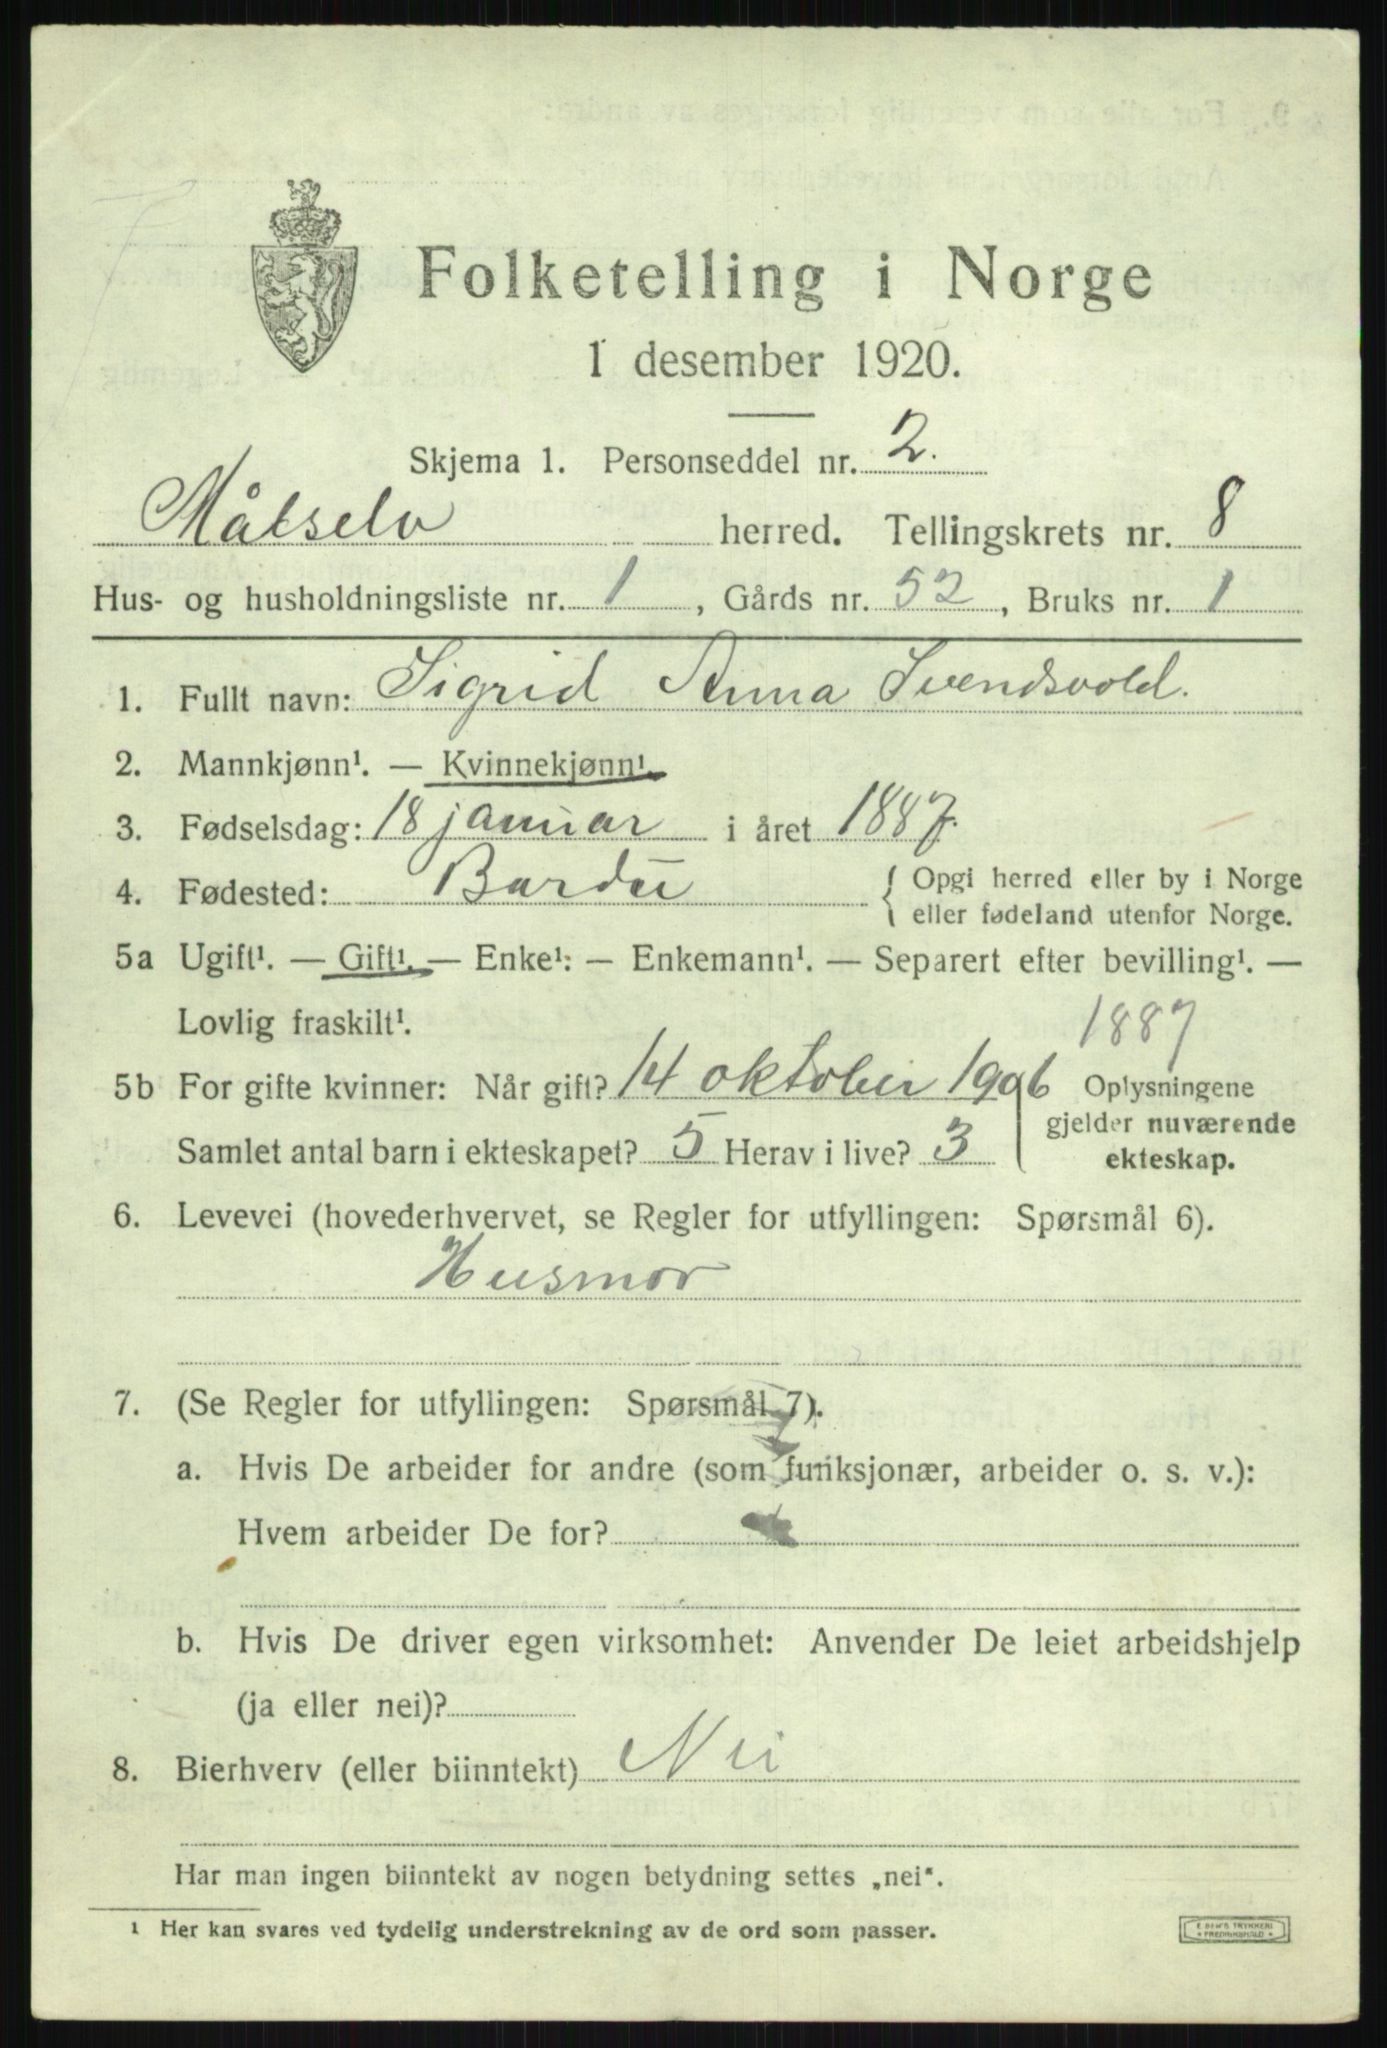 Folketelling i Norge
1 desember 1920.
Skjema 1. Personseddel nr. 2.
Målselv herred. Tellingskrets nr. 8
Hus- og husholdningsliste nr. 1, Gårds nr. 52, Bruks nr. 1
1. Fullt navn: Sigrid Anna Svendsvold.
2. Mannkjønn¹. — Kvinnekjønn¹.
3. Fødselsdag: 18 januar i året 1887.
4. Fødested: Bardu { Opgi herred eller by i Norge
eller fødeland utenfor Norge.
5a Ugift¹. — Gift¹. — Enke¹: — Enkemann¹. — Separert efter bevilling¹. —
Lovlig fraskilt¹. 1887
5b For gifte kvinner: Når gift? 14 oktober 1906 Oplysningene
gjelder nuværende
Samlet antal barn i ekteskapet? 5 Herav i live? 3 ekteskap.
6. Levevei (hovederhvervet, se Regler for utfyllingen: Spørsmål 6).
Husmor
7. (Se Regler for utfyllingen: Spørsmål 7).
a. Hvis De arbeider for andre (som funksjonær, arbeider o. s. v.):
Hvem arbeider De for?
b. Hvis De driver egen virksomhet: Anvender De leiet arbeidshjelp
(ja eller nei)?
8. Bierhverv (eller biinntekt) Nei
Har man ingen biinntekt av nogen betydning settes „nei“.
¹ Her kan svares ved tydelig understrekning av de ord som passer.